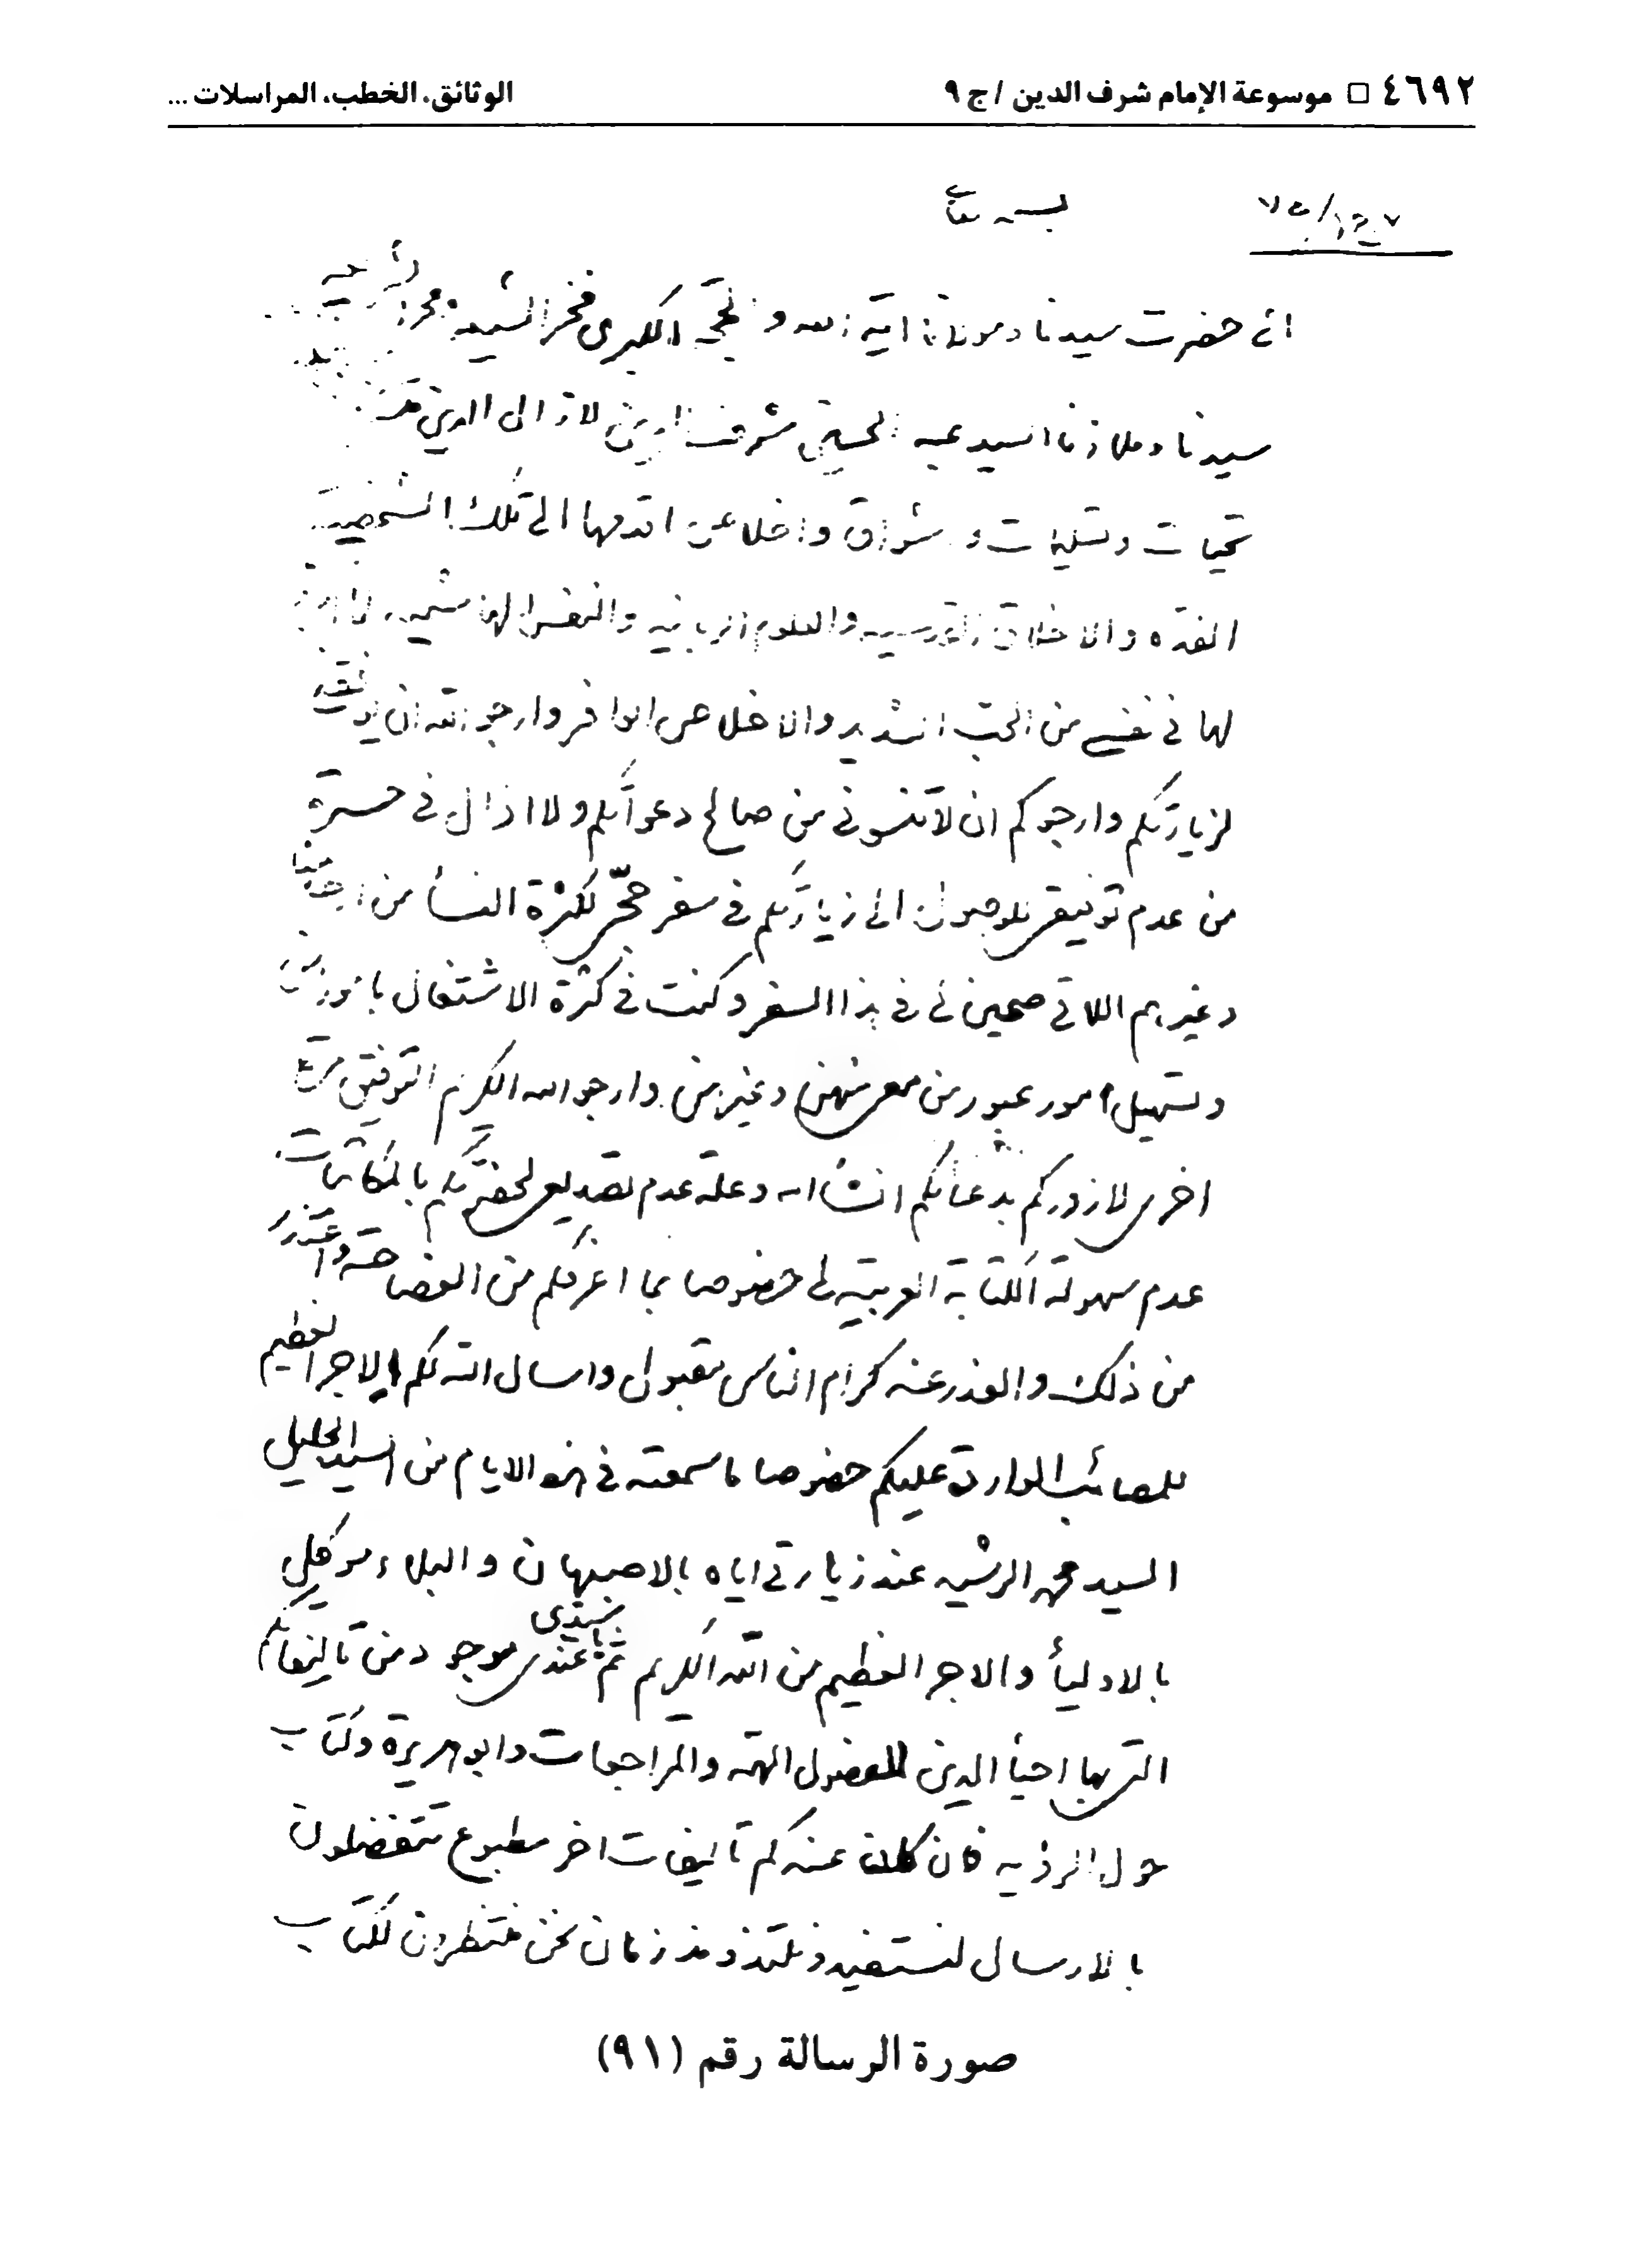 ٤٦٩٢ □ موسوعة الإمام شرف الدين / ج ٩
الوثائق، الخطب، المراسلات ...
بسمه تعالى
الى حضرت سيدنا ومولانا اية الله و الحجة الكبرى فخر الشيعة
سيدنا وملاذنا السيد عبد الحسين شرف الدين لا زالى الدين
تحيات وتسليمات و اشواق واخلاص اقدمها الى تلك الشخصية
الفذه والاخلاق القدسيه والعلوم الربانيه والنفس الهاشميه
لها فى نفسى من الحب الشديد والاخلاص الوافر وارجو الله ان يوفقنى
لزيارتكم وارجوكم ان لا تنسونى من صالح دعواتكم ولا ازال فى حسرة
من عدم توفيقى للوصول الى زيارتكم فى سفر حجى لكثرة النسأ من
وغيرهم اللاتى صحبن لى فى هذا السفر وكنت فى كثرة الاشتغال
وتسهيل امور عبور من معى منهن وغيرهن وارجو الله الكريم التوفيق مرة
اخرى لازوركم بدعائكم انشأ الله وعلة عدم تصديعى لحضرتكم بالمكاتبات
عدم سهولة الكتابة العربية لى خصوصا بما اعرفكم من الفصاحة واعتذر
من ذلك والعذر عند كرام الناس مقبول واسال الله لكم الاجر العظيم
للمصائب الواردة عليكم خصوصا ما سمعته فى هذه الايام من السيد الجليل
السيد محمد الرشيد عند زيارتى اياه بالاصبهان والبلاء موكل
بالاوليأ والاجر العظيم من الله الكريم ثم يا سيدى عندى موجود من تاليفاتكم
التى بها احيأ الدين الفصول المهمة والمراجعات وابو هريرة وكتاب
حول الرؤيه فان كان عندكم تاليفات اخر مطبوع تتفضلون
بالارسال لنستفيد ونلتذ ومنذ زمان نحن منتظرون لكتاب
صورة الرسالة رقم (٩١)